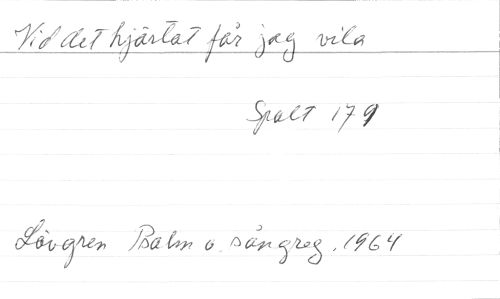 Vid det hjärtat får jag vila
Spalt 179
Lövgren Psalm o. sångreg. 1964